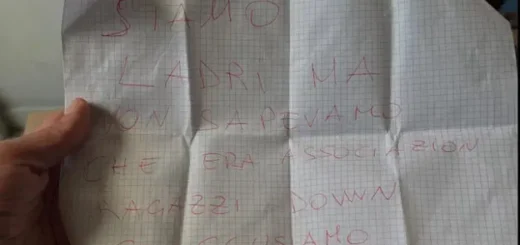 SIAMO
LADRI MA
NON SAPEVAMO
CHE ERA ASSOCIAZION
RAGAZZI DOWN